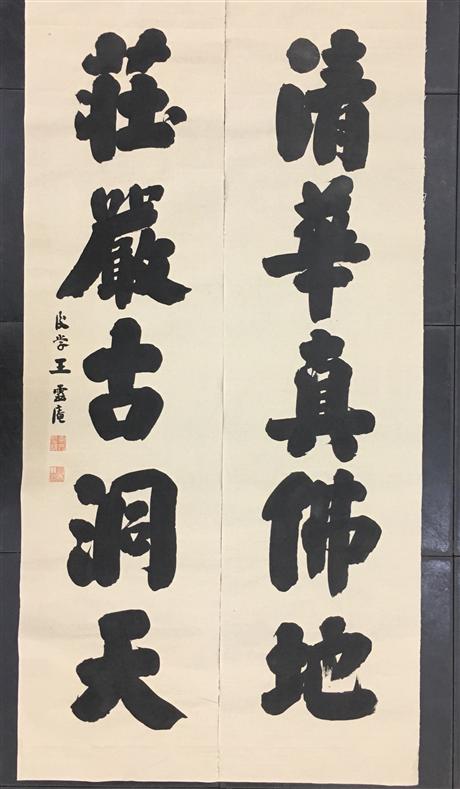 清華真佛地
莊嚴古洞天
後学王靈庵